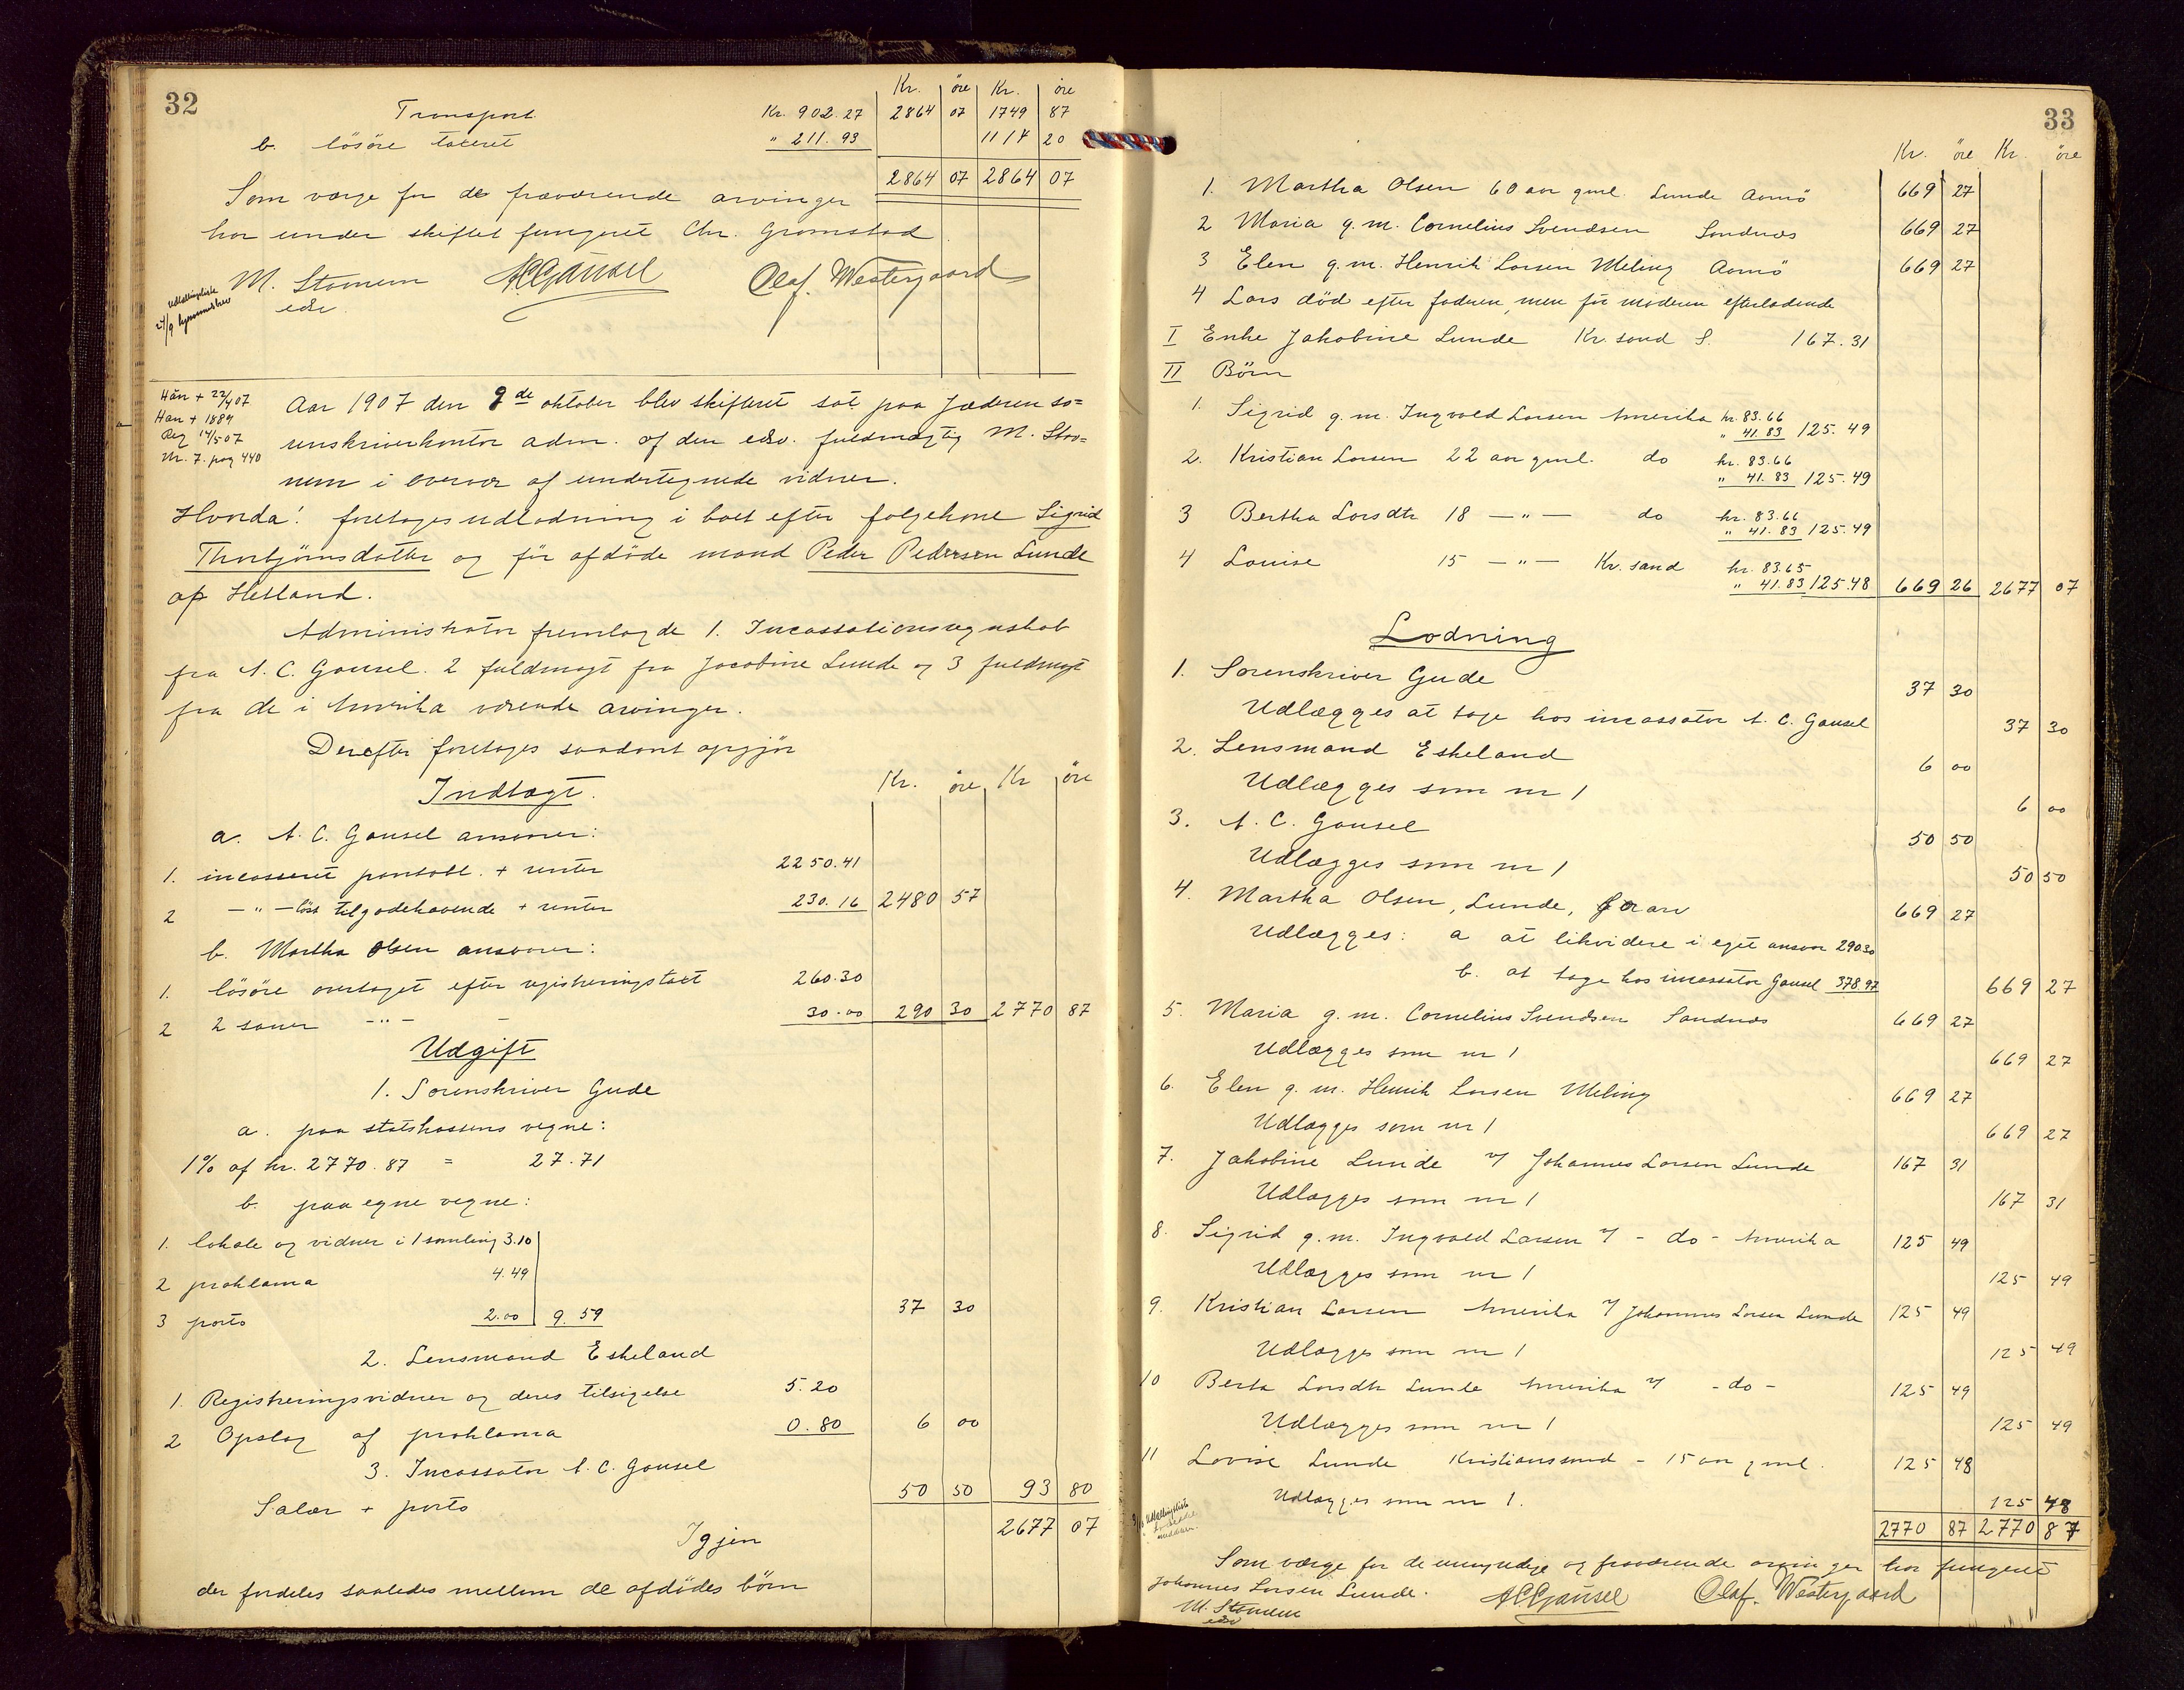 32
Kr. öre Kr. öre
Transport Kr. 902.27 2864 07 1749 87
b. lösöre taxeret " 211.93 1114 20
2864 07 2864 07
Som værge for de fraværende arvinger
har under skiftet fungeret Chr. Gramstad.
M. Stornem A.C. Gausel Olaf. Westergaard
edsv.
Udlodningsliste
Hun + 22/4 07
Han + 1889
Reg 14/5 07
Nr. 7. pag 440
Aar 1907 den 9de oktober blev skifteret sat paa Jæderen so=
renskriverkontor adm. af den edsv. fuldmægtig M. Stor=
nem i overvær af undertegnede vidner.
Hvorda! foretoges udlodning i boet efter følgekone Sigrid
Thorbjörnsdatter og för afdöde mand Peder Pedersen Lunde
af Hetland.
Administrator fremlagde 1. Incassationsregnskab
fra A. C. Gausel. 2 fuldmagt fra Jacobine Lunde og 3 fuldmagt
fra de i Amerika værende arvinger.
Derefter foretoges saadant opgjör
Kr. öre Kr öre
Indtægt.
a. A. C. Gausel ansvarer:
1. incasseret pantobl. + renter 2250.41
2 — " — löst tilgodehavende + renter 230.16 2480 57
b. Martha Olsen ansvarer:
1. lösöre overtaget efter registreringstaxt 260.30
2 2 sauer — " — — 30.00 290 30 2770 87
Udgift
1. Sorenskriver Gude
a. paa statskassens vegne:
1% af kr. 2770.87 = 27.71
b. paa egne vegne:
1. lokale og vidner i 1 samling 3.10
2 proklama 4.49
3 porto 2.00 9.59 37 30
2. Lensmand Eskeland
1. Registreringsvidner og deres tilsigelse 5.20
2 Opslag af proklama 0.80 6 00
3. Incassator A. C. Gausel
Salær + porto 50 50 93 80
Igjen 2677 07
der fordeles saaledes mellem de afdödes börn
33
Kr. öre Kr. öre
1. Martha Olsen 60 aar gml. Lunde Aamö 669 27
2 Maria g.m. Cornelius Svendsen Sandnæs 669 27
3 Elen g.m. Henrik Larsen Meling Aamö 669 27
4 Lars död efter faderen, men för moderen efterladende
I Enke Jakobine Lunde Kr. sand S. 167.31
II Börn
1. Sigrid g.m. Ingvald Larsen Amerika kr. 83.66
" 41.83 125.49
2. Kristian Larsen 22 aar gml. do kr. 83.66
" 41.83 125.49
3 Bertha Larsdtr 18 — " — do kr. 83.66
" 41.83 125.49
4 Louise 15 — " — Kr. sand kr. 83.65
" 41.83 125.48 669 26 2677 07
Lodning
1. Sorenskriver Gude 37 30
Udlægges at tage hos incassator A. C. Gausel 37 30
2. Lensmand Eskeland 6 00
Udlægges som nr 1 6 00
3. A. C. Gausel 50 50
Udlægges som nr 1 50 50
4. Martha Olsen, Lunde, for arv 669 27
Udlægges: a at likvidere i eget ansvar 290.30
b. at tage hos incassator Gausel 378.97 669 27
5. Maria g.m. Cornelius Svendsen Sandnæs 669 27
Udlægges som nr 1 669 27
6. Elen g.m. Henrik Larsen Meling 669 27
Udlægges som nr 1 669 27
7. Jakobine Lunde v/ Johannes Larsen Lunde 167 31
Udlægges som nr 1 167 31
8. Sigrid g.m. Ingvald Larsen v/ - do - Amerika 125 49
Udlægges som nr 1 125 49
9. Kristian Larsen Amerika v/ Johannes Larsen Lunde 125 49
Udlægges som nr 1 125 49
10 Berta Larsdtr Lunde Amerika v/ - do - 125 49
Udlægges som nr 1 125 49
11 Lovise Lunde Kristianssand - 15 aar gml. 125 48
Udlægges som nr 1. 125 48
2770 87 2770 87
Som værge for de umyndige og fraværende arvinger har fungeret
Johannes Larsen Lunde. A.C. Gausel Olaf. Westergaard
M. Stornem
edsv